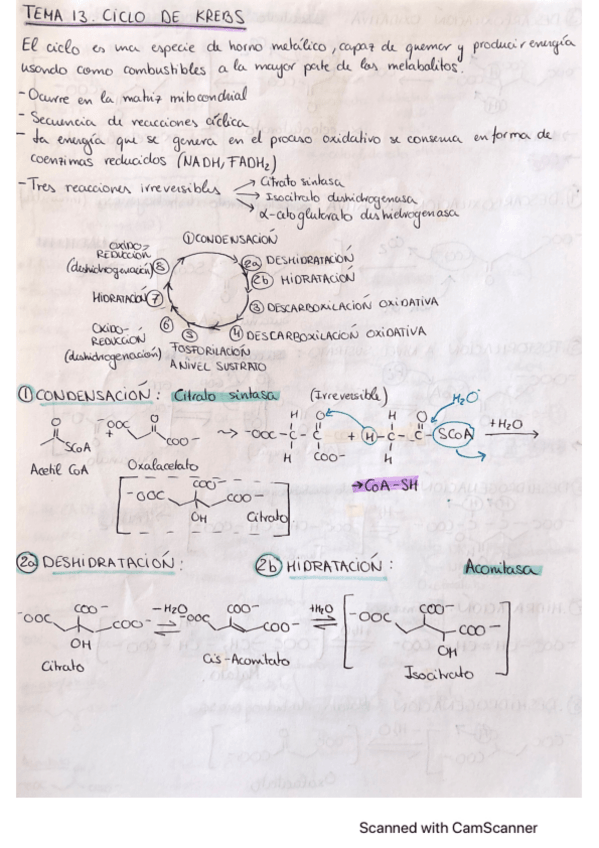 TEMA 13. CICLO DE KREBS
El ciclo es una especie de horno metálico, capaz de quemar y producir energía
usando como combustibles a la mayor parte de los metabolitos.
- Ocurre en la matriz mitocondrial
- Secuencia de reacciones cíclica
- La energía que se genera en el proceso oxidativo se conserva en forma de
coenzimas reducidos (NADH, FADH2)
- Tres reacciones irreversibles → Citrato sintasa
→ Isocitrato deshidrogenasa
→ α-cetoglutarato deshidrogenasa
① CONDENSACIÓN
OXIDO-
REDUCCIÓN
(deshidrogenación) ⑧
2a DESHIDRATACIÓN
2b HIDRATACIÓN
HIDRATACIÓN ⑦
③ DESCARBOXILACIÓN OXIDATIVA
④ DESCARBOXILACIÓN OXIDATIVA
OXIDO-
REDUCCIÓN
(deshidrogenación)
⑥
⑤
FOSFORILACIÓN
A NIVEL SUSTRATO
① CONDENSACIÓN: Citrato sintasa (Irreversible)
O SCoA + -OOC O COO- ~> -OOC-C-C H H O COO- + H-C-C-SCoA H H O H2O +H2O
Acetil CoA Oxalacetato
→ CoA-SH
-OOC COO- COO- OH Citrato
2a DESHIDRATACIÓN: 2b HIDRATACIÓN: Aconitasa
-OOC COO- COO- OH -H2O -OOC COO- COO- +H2O -OOC COO- COO- OH
Citrato Cis-Aconitato Isocitrato
Scanned with CamScanner